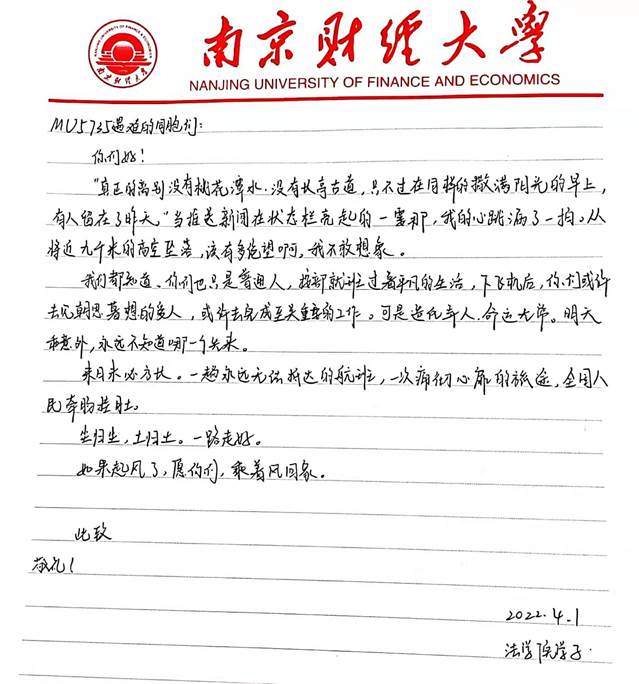 NANJING UNIVERSITY OF FINANCE & ECONOMICS
南京财经大学
南京财经大学
NANJING UNIVERSITY OF FINANCE AND ECONOMICS
MU5735遇难的同胞们:
你们好!
"真正的离别没有桃花潭水,没有长亭古道,只不过在同样的撒满阳光的早上,
有人留在了昨天"当推送新闻在状态栏亮起的一霎那,我的心跳漏了一拍。从
将近九千米的高空坠落,该有多绝望啊,我不敢想象。
我们都知道,你们也只是普通人,按部就班过着平凡的生活,下飞机后,你们或许
去见朝思暮想的爱人,或许去完成至关重要的工作。可是造化弄人,命运无常。明天
和意外,永远不知道哪一个先来。
来日未必方长。一趟永远无法抵达的航班,一次痛彻心扉的旅途,全国人
民牵肠挂肚。
尘归尘,土归土。一路走好。
如果起风了,愿你们,乘着风回家。
此致
敬礼!
2022.4.1
法学院学子.